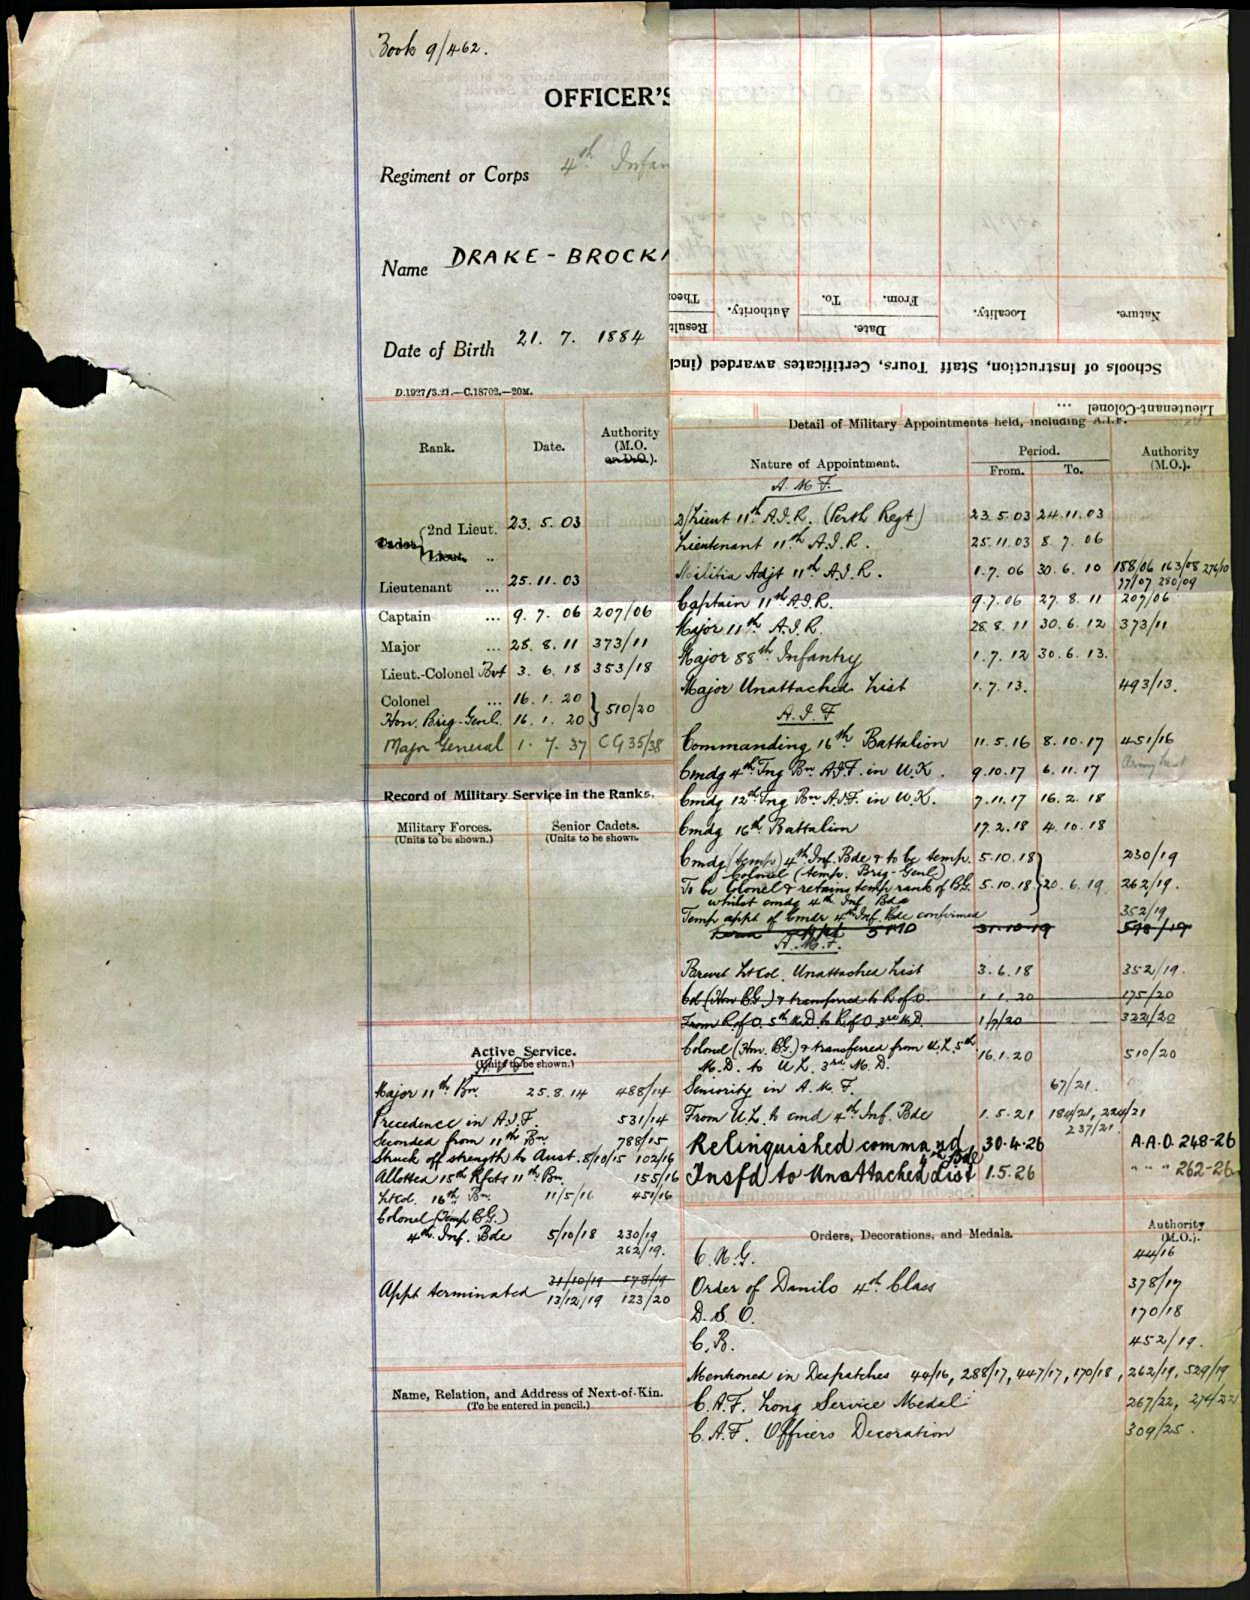 Book 9/462.
OFFICER'S
Regiment or Corps 4th Infan
Name DRAKE - BROCK
Date of Birth 21. 7. 1884
D.1927/3.21.—C.18702.—20M.
Rank. Date. Authority (M.O. or D.O.).
2nd Lieut. 23. 5. 03
Cadet Lieut. ..
Lieutenant ... 25. 11. 03
Captain ... 9. 7. 06 207/06
Major ... 28. 8. 11 373/11
Lieut.-Colonel Bvt 3. 6. 18 353/18
Colonel ... 16. 1. 20
Hon. Brig-Genl. 16. 1. 20 } 510/20
Major General 1. 7. 37 CG 35/38
Record of Military Service in the Ranks.
Military Forces. (Units to be shown.)
Senior Cadets. (Units to be shown.)
Active Service.
(Units to be shown.)
Major 11th Bn. 25.8.14 488/14
Precedence in A.I.F. 531/14
Seconded from 11th Bn 788/15
Struck off strength to Aust. 8/10/15 102/16
Allotted 15th Rfcts 11th Bn. 155/16
Lt Col. 16th Bn. 11/5/16 451/16
Colonel (Temp B.G.)
4th Inf. Bde 5/10/18 230/19
262/19.
31/10/19 578/19
Appt terminated 13/12/19 123/20
Name, Relation, and Address of Next-of-Kin.
(To be entered in pencil.)
Nature. Locality. Date. From. To. Authority. Result Theo
Schools of Instruction, Staff Tours, Certificates awarded (incl
Lieutenant-Colonel ...
Detail of Military Appointments held, including A.I.F.
Nature of Appointment. Period. From. To. Authority (M.O.).
A. M. F.
2/Lieut 11th A.I.R. (Perth Regt) 23.5.03 24.11.03
Lieutenant 11th A.I.R. 25.11.03 8. 7. 06
Militia Adjt 11th A.I.R. 1.7.06 30.6.10 188/06 163/08 276/10
77/07 280/09
Captain 11th A.I.R. 9.7.06 27.8.11 207/06
Major 11th A.I.R. 28.8.11 30.6.12 373/11
Major 88th Infantry 1.7.12 30.6.13.
Major Unattached List 1.7.13. 493/13.
A. I. F
Commanding 16th Battalion 11.5.16 8.10.17 451/16
Cmdg 4th Tng Bn A.I.F. in U.K. 9.10.17 6.11.17
Cmdg 12th Tng Bn A.I.F. in U.K. 7.11.17 16.2.18
Cmdg 16th Battalion 17.2.18 4.10.18
Cmdg (temp) 4th Inf. Bde & to be temp. 5.10.18 230/19
Colonel (temp. Brig-Genl)
To be Colonel & retains temp rank of B.G. 5.10.18 20.6.19 262/19.
whilst cmdg 4th Inf Bde
Temp appt of Cmdr 4th Inf. Bde confirmed 352/19
31.10.19 578/19
A. M. F.
Brevet Lt Col. Unattached List 3.6.18 352/19.
Col (Hon B.G.) & transferred to R of O. 1.1.20 175/20
From R of O. 5th M.D. to R of O 3rd M.D. 1/7/20 322/20
Colonel (Hon. B.G.) & transferred from U.L. 5th 16.1.20 510/20
M.D. to U.L. 3rd M.D.
Seniority in A.M.F. 67/21.
From U.L. to cmd 4th Inf. Bde 1.5.21 184/21, 224/21
237/21
Relinquished command 4th Bde 30.4.26 A.A.O. 248-26
Tnsfd to Unattached List 1.5.26 " " " 262-26
Orders, Decorations, and Medals. Authority (M.O.).
C. M. G. 44/16
Order of Danilo 4th Class 378/17
D. S. O. 170/18
C. B. 452/19.
Mentioned in Despatches 44/16, 288/17, 447/17, 170/18, 262/19, 529/19
C. A. F. Long Service Medal 267/22, 274/22
C. A. F. Officers Decoration 309/25.